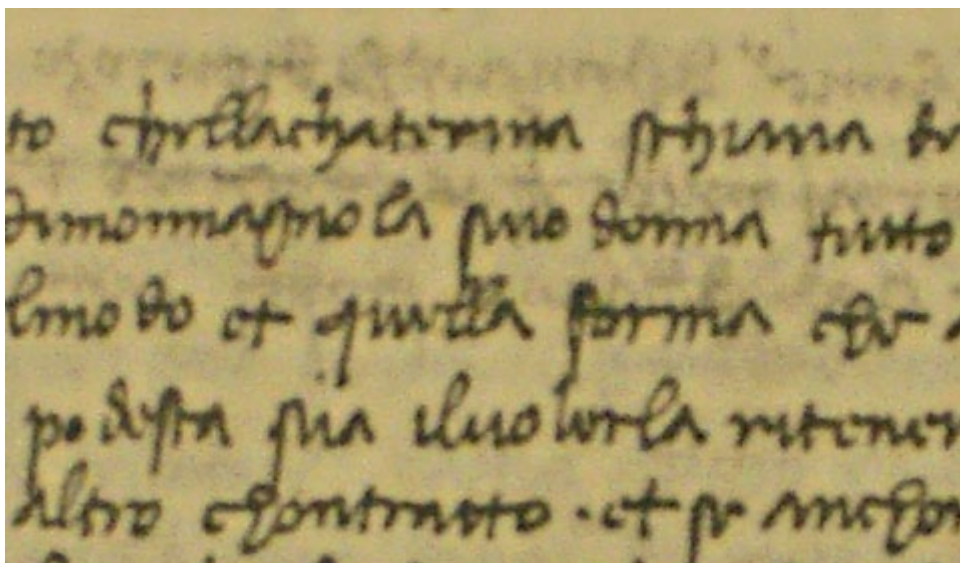 to chellachaterina schiava de
dimonnagnola suo donna tutto
lmodo et quella forma che a
podesta sua iluolerla ritener
altro chontratto · et se anchor